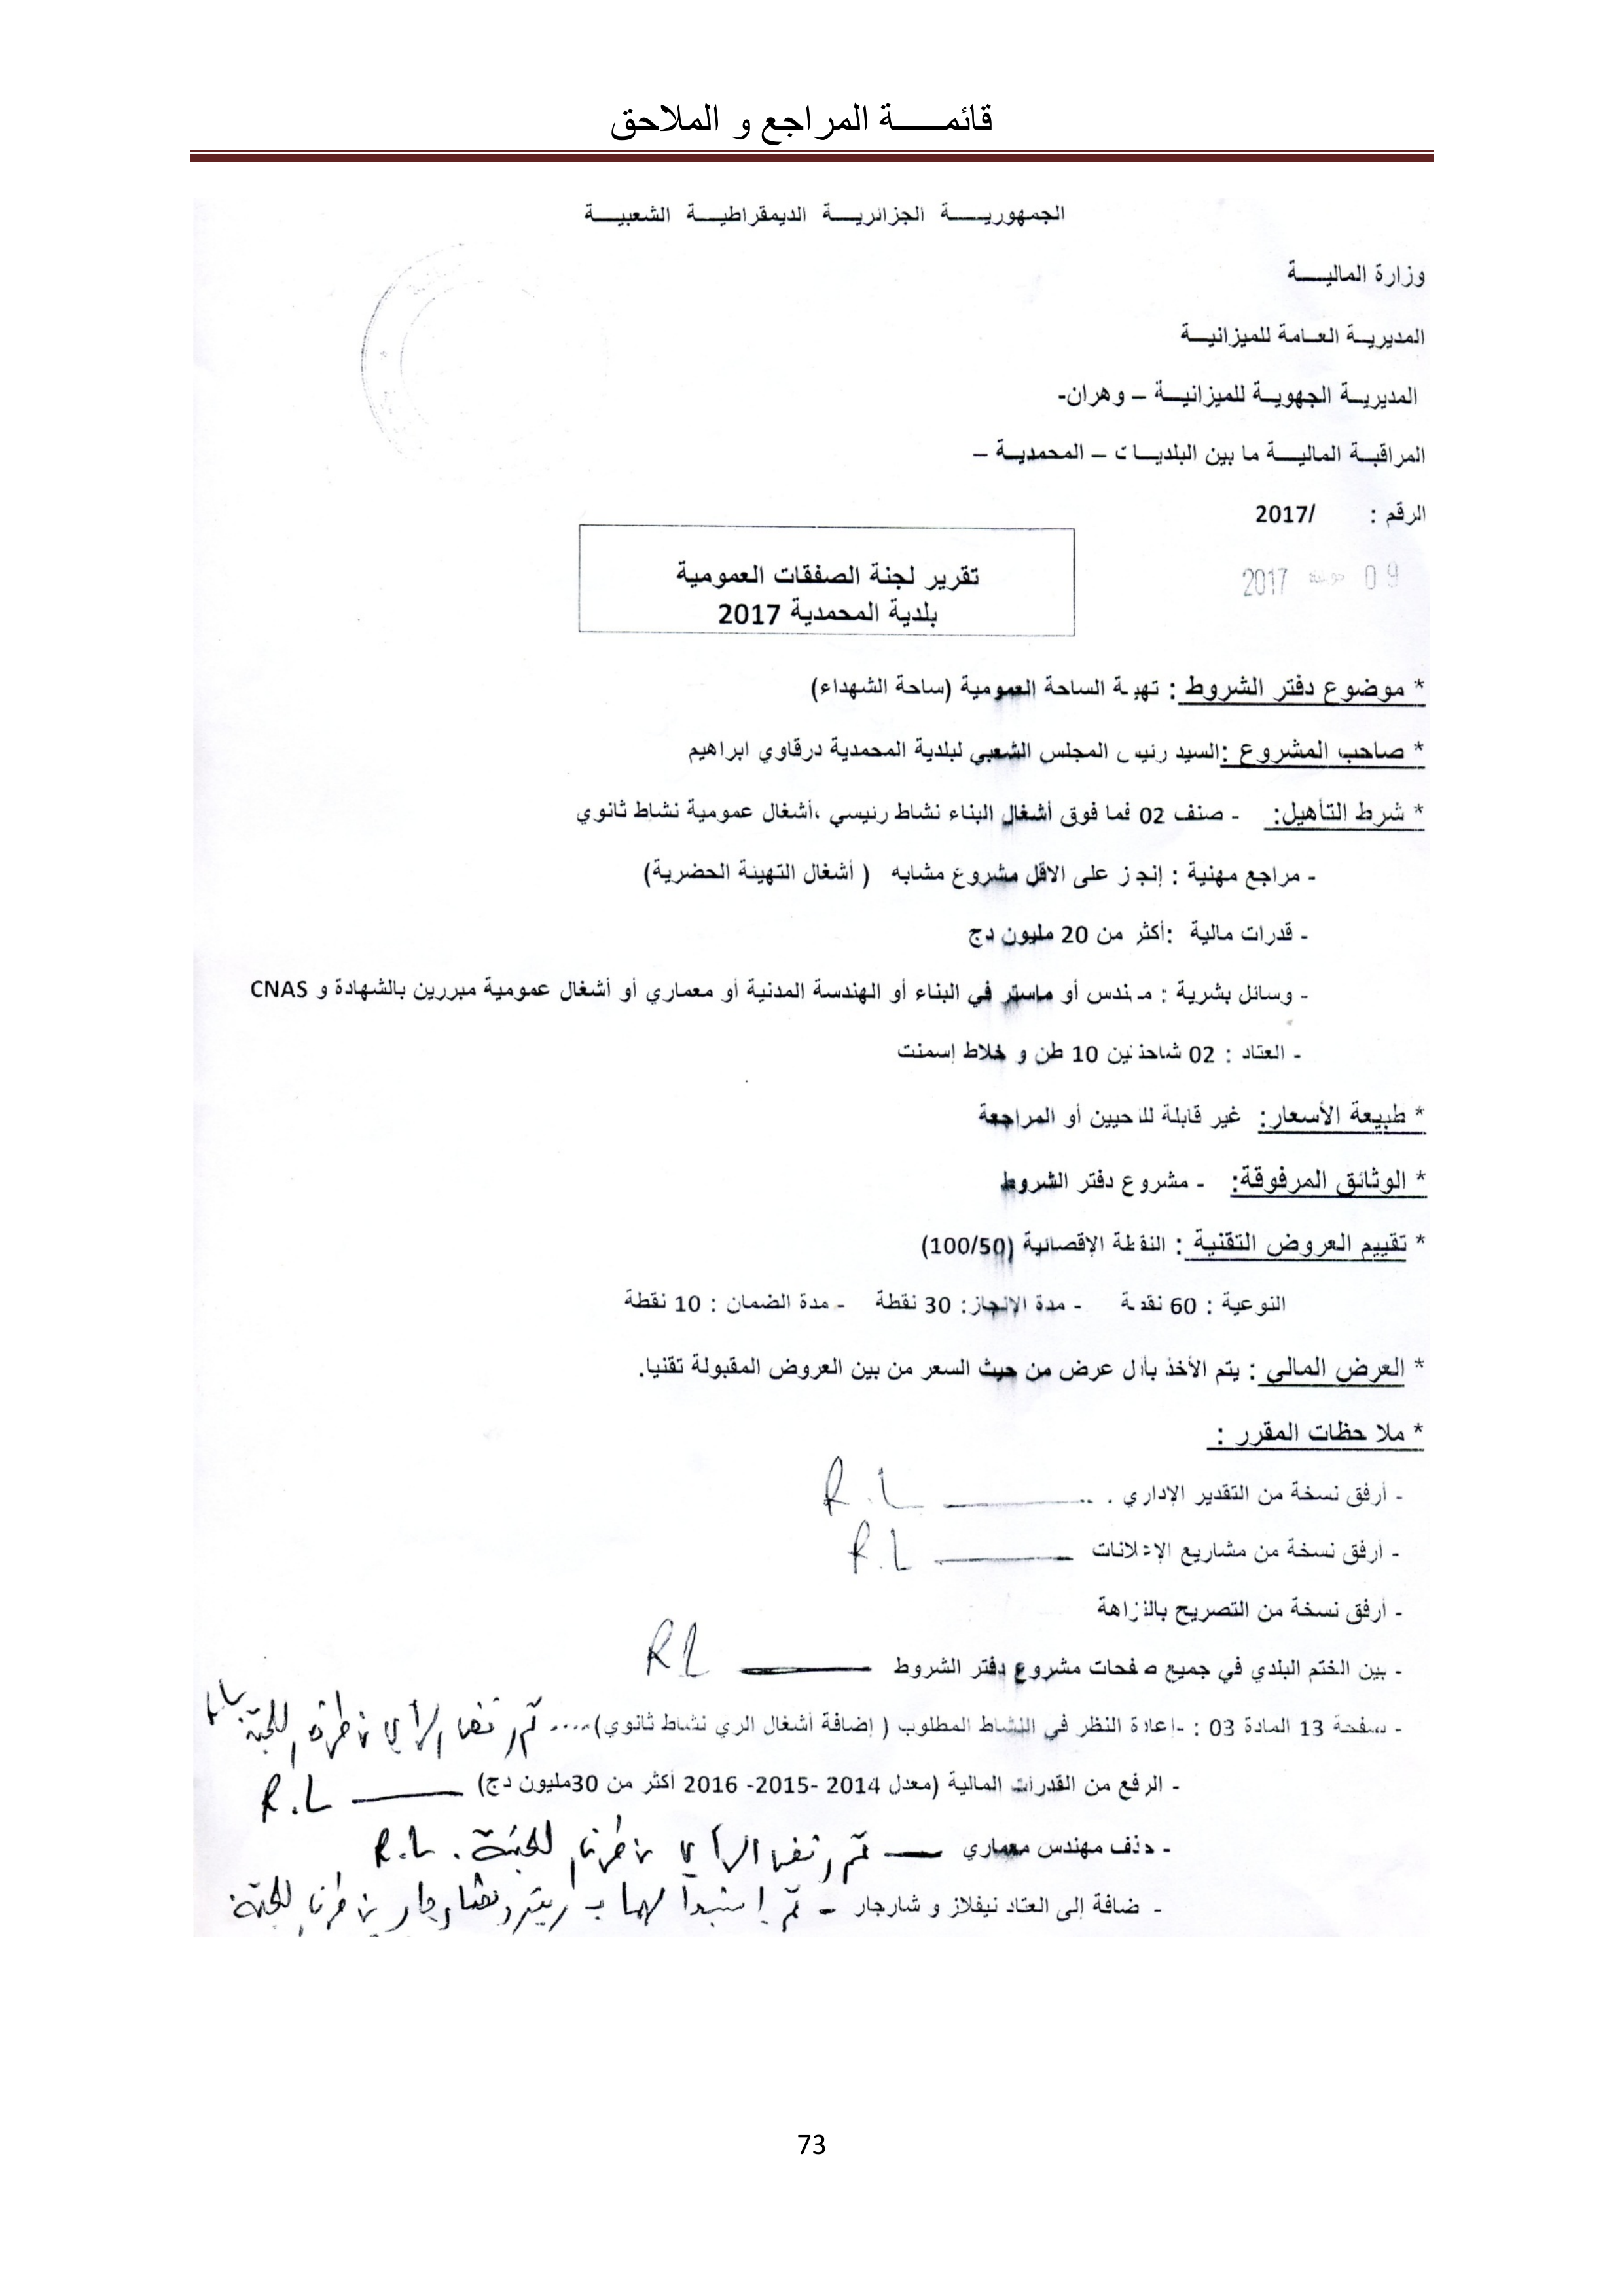 قائمـــــة المراجع و الملاحق
الجمهوريـــــة الجزائريـــة الديمقراطيـــة الشعبيـــة
وزارة الماليـــــة
المديريــة العــامة للميزانيــة
المديريــة الجهويــة للميزانيــة – وهران-
المراقبــة الماليــــة ما بين البلديــات – المحمديــة –
الرقم : /2017
09 2017
تقرير لجنة الصفقات العمومية
بلدية المحمدية 2017
* موضوع دفتر الشروط : تهيئة الساحة العمومية (ساحة الشهداء)
* صاحب المشروع :السيد رئيس المجلس الشعبي لبلدية المحمدية درقاوي ابراهيم
* شرط التأهيل: - صنف 02 فما فوق أشغال البناء نشاط رئيسي ،أشغال عمومية نشاط ثانوي
- مراجع مهنية : إنجاز على الاقل مشروع مشابه ( أشغال التهيئة الحضرية)
- قدرات مالية :أكثر من 20 مليون دج
- وسائل بشرية : مهندس أو ماستر في البناء أو الهندسة المدنية أو معماري أو أشغال عمومية مبررين بالشهادة و CNAS
- العتاد : 02 شاحنتين 10 طن و خلاط إسمنت
* طبيعة الأسعار: غير قابلة للتحيين أو المراجعة
* الوثائق المرفوقة: - مشروع دفتر الشروط
* تقييم العروض التقنية : النقطة الإقصائية (100/50)
النوعية : 60 نقطة - مدة الإنجاز: 30 نقطة - مدة الضمان : 10 نقطة
* العرض المالي : يتم الأخذ بأقل عرض من حيث السعر من بين العروض المقبولة تقنيا.
* ملاحظات المقرر :
- أرفق نسخة من التقدير الإداري . R.L
- أرفق نسخة من مشاريع الإعلانات R.L
- أرفق نسخة من التصريح بالنزاهة
- بين الختم البلدي في جميع صفحات مشروع دفتر الشروط R.L
- صفحة 13 المادة 03 : -إعادة النظر في النشاط المطلوب ( إضافة أشغال الري نشاط ثانوي).... تم رفض الرأي من طرف اللجنة R.L
- الرفع من القدرات المالية (معدل 2014 -2015- 2016 أكثر من 30مليون دج) R.L
- حذف مهندس معماري — تم رفض الرأي من طرف اللجنة . R.L
- ضافة إلى العتاد نيفلاز و شارجار - تم إستبدالهما بـ من طرف اللجنة
73